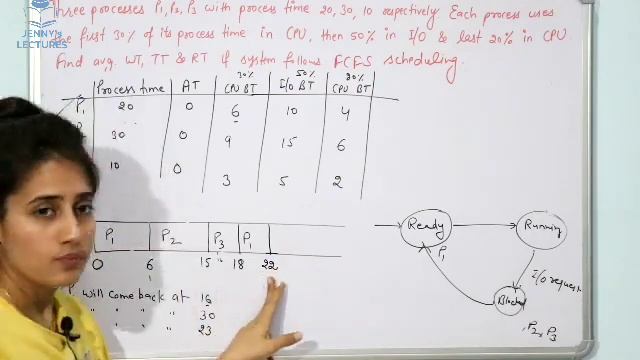 JENNY's
LECTURES
Three processes P1, P2, P3 with process time 20, 30, 10 respectively. Each process uses
the first 30% of its process time in CPU, then 50% in I/O & last 20% in CPU.
Find avg. WT, TT & RT if system follows FCFS scheduling.
30% 50% 20%
Process time AT CPU BT I/O BT CPU BT
P1 20 0 6 10 4
30 0 9 15 6
10 0 3 5 2
P1 P2 P3 P1
0 6 15 18 22
will come back at 16
" " " " 30
" " " 23
Ready Running
P1
I/O request
Blocked
P2, P3